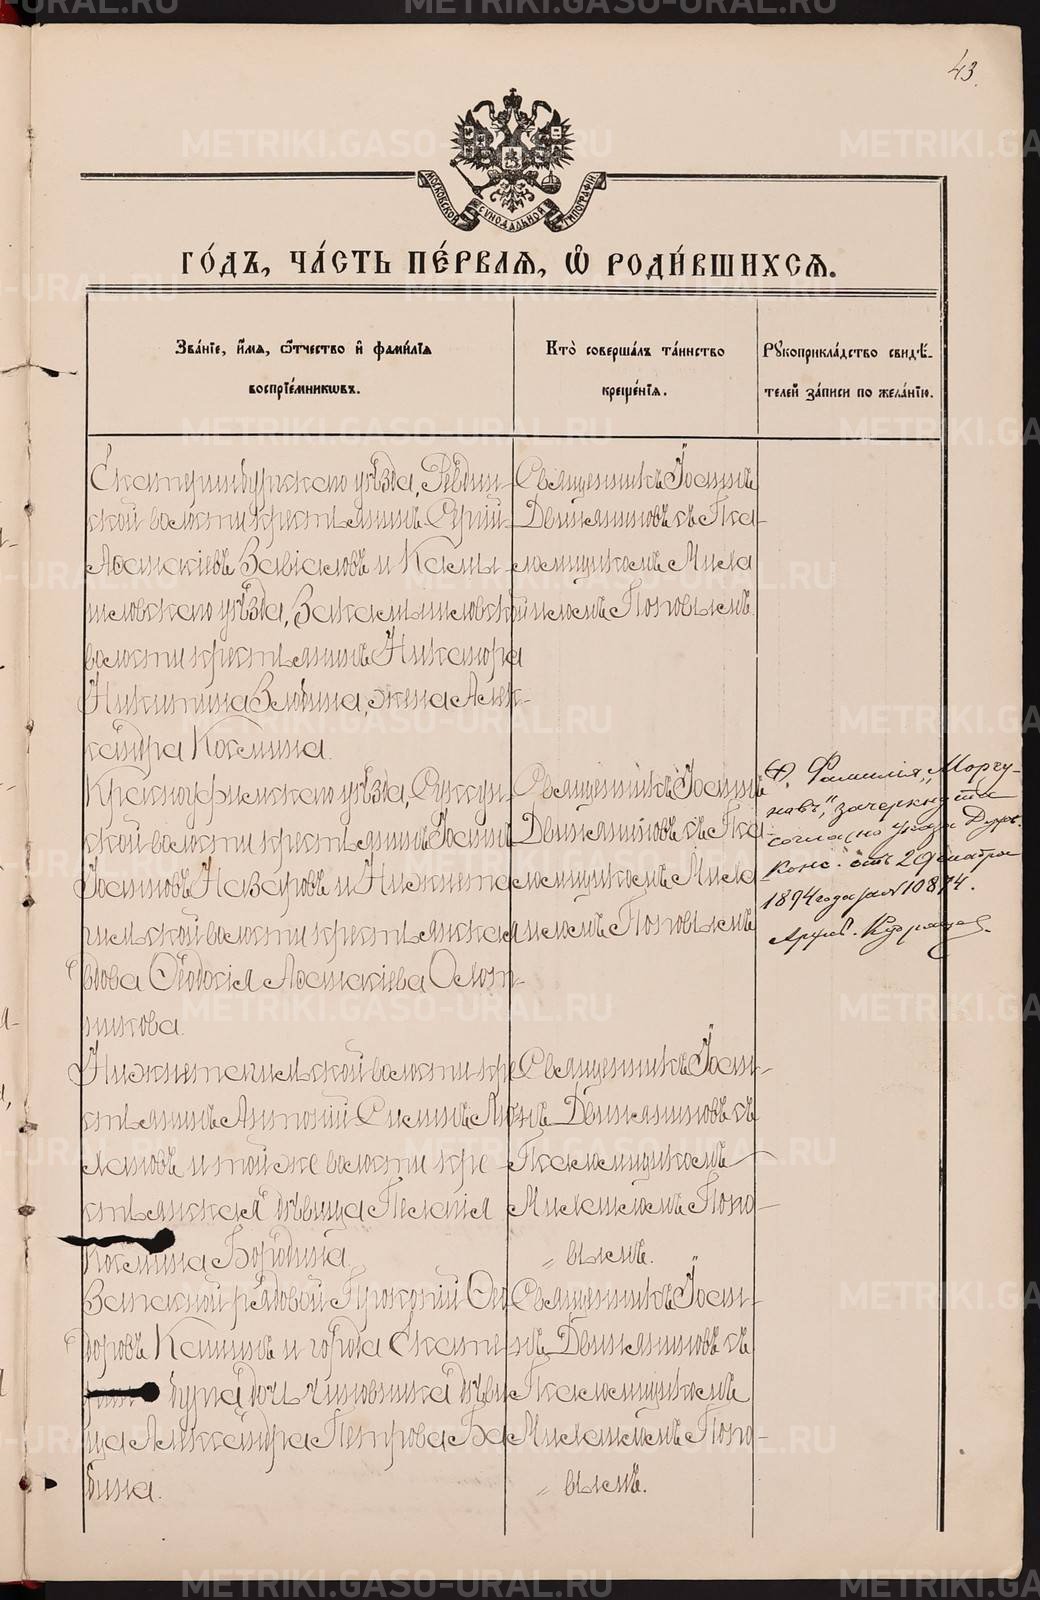 43.
МОСКОВСКОЙ СѴНОДАЛЬНОЙ ТИПОГРАФІИ
ГО́ДЪ, ЧА́СТЬ ПЕ́РВАЯ, Ѽ РОДИ́ВШИХСЯ.
Зва́нїе, и҆́мя, ѻ҆́тчество и҆ фами́лїя
воспрїе́мникѡвъ.
Кто̀ соверша́лъ та́инство
креще́нїя.
Рꙋкоприкла́дство свидѣ́-
телей за́писи по жела́нїю.
Екатеринбургскаго уѣзда, Ревдин-
ской волости крестьянинъ Сергій
Евстакіевъ Завьяловъ и Камы-
шловскаго уѣзда, Закамышловской
волости крестьянинъ Никанора
Никитина Злобина, жена Алек-
сандра Космина.
Священникъ Іоаннъ
Двиняниновъ съ Пса-
ломщикомъ Миха
иломъ Поповымъ.
Красноуфимскаго уѣзда, Суксун-
ской волости крестьянинъ Іоаннъ
Іоанновъ Назаровъ и Нижнета
гильской волости крестьянка
вдова Ѳеодосія Евстакіева Олот-
никова.
Священникъ Іоаннъ
Двиняниновъ съ Пса-
ломщикомъ Миха
иломъ Поповымъ
Ф. Фамилія "Моргу-
новъ", зачеркнута
согласно указа Духов.
Конс. отъ 29 декабря
1894 года за № 10874.
Нижнетагильской волости кре
стьянинъ Антоній Силинъ
и той же волости кре-
стьянская дѣвица Пелагія
Космина Бородина.
Священникъ Іоан-
нъ Двиняниновъ съ
Псаломщикомъ
Михаиломъ Попо-
" вымъ.
Запасной рядовой Прокопій Ѳео
доровъ Кашинъ и города Екате-
бурга дочь чиновника дѣви
ца Александра Петрова Ба
бина.
Священникъ Іоан-
нъ Двиняниновъ съ
Псаломщикомъ
Михаиломъ Попо-
" вымъ.
METRIKI.GASO-URAL.RU